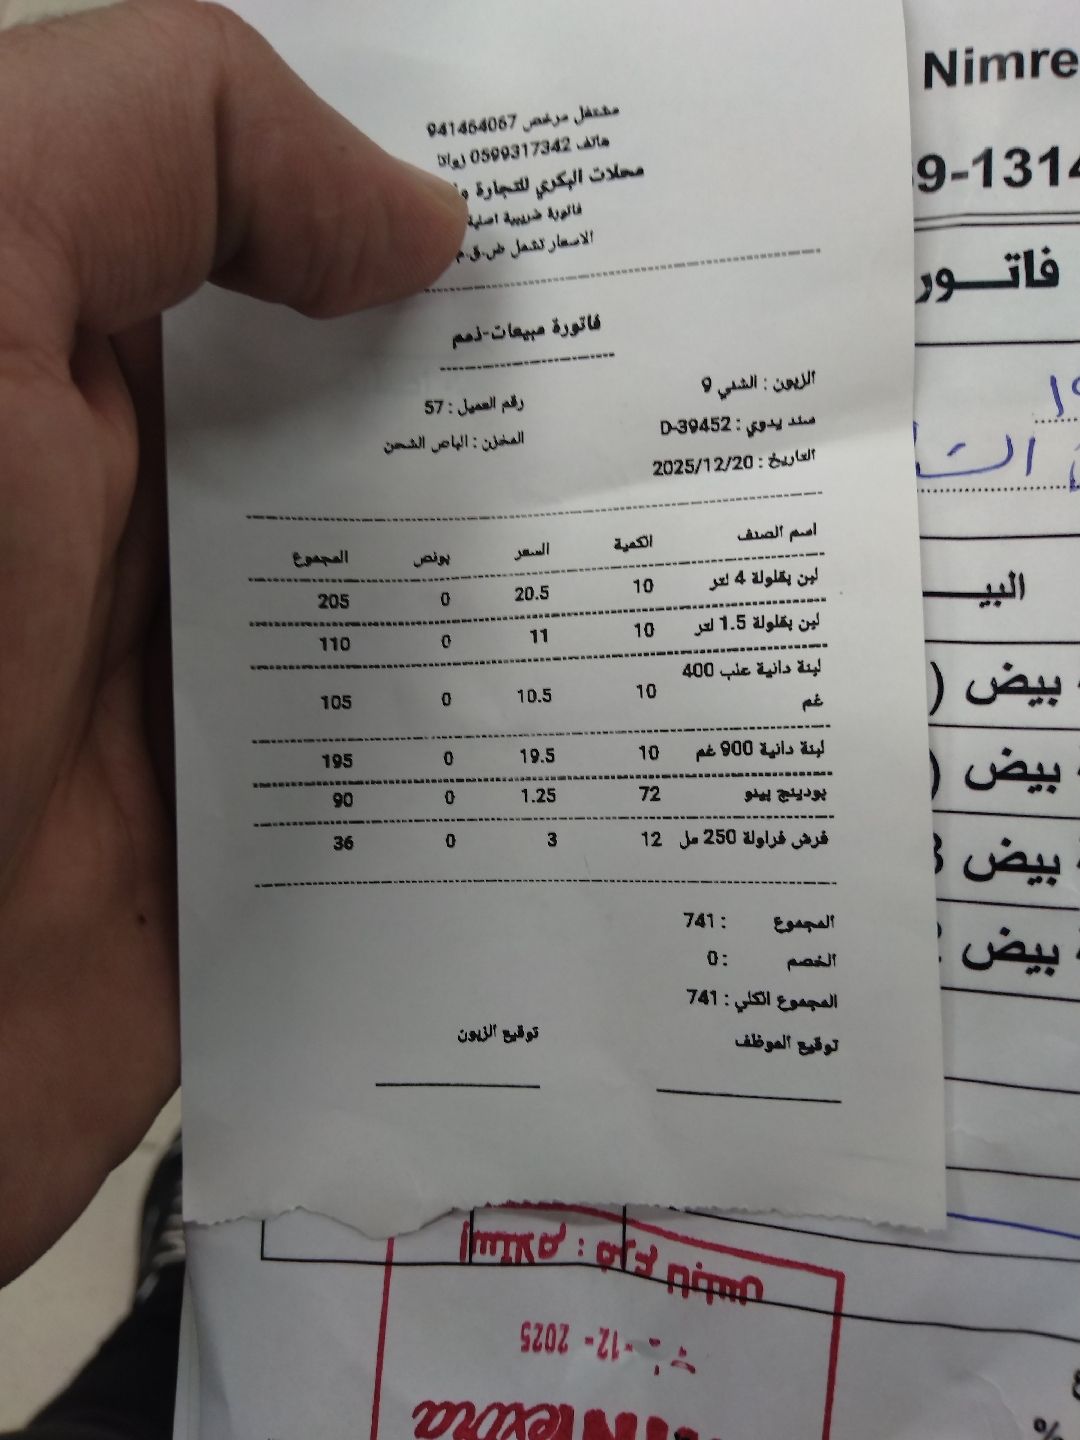 مشتغل مرخص 941464067
هاتف 0599317342
محلات البكري للتجارة
فاتورة ضريبية اصلية
الاسعار تشمل ض.ق.م
فاتورة مبيعات-ذمم
الزبون : الشني 9
رقم العميل : 57
سند يدوي : D-39452
المخزن : الباص الشحن
التاريخ : 2025/12/20
اسم الصنف الكمية السعر بونص المجموع
لبن بقلولة 4 لتر 10 20.5 0 205
لبن بقلولة 1.5 لتر 10 11 0 110
لبنة دانية علب 400 10 10.5 0 105
غم
لبنة دانية 900 غم 10 19.5 0 195
بودينج بينو 72 1.25 0 90
فرش فراولة 250 مل 12 3 0 36
المجموع : 741
الخصم : 0
المجموع الكلي : 741
توقيع الموظف توقيع الزبون
Nimre
9-1314
فاتـــور
البيـــ
بيض (
بيض (
بيض
بيض
استلام : فرع نابلس
-12- 2025
%